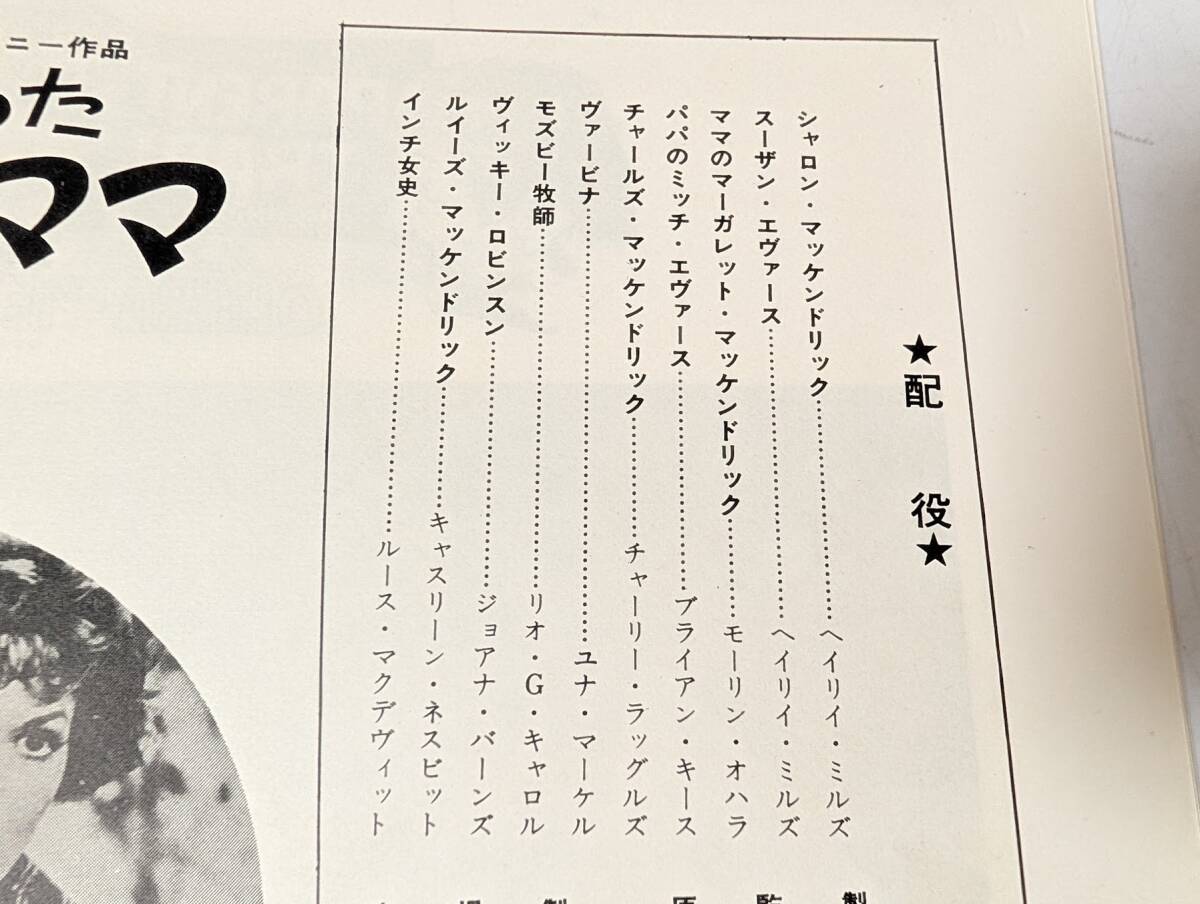 ★配役★
シャロン・マッケンドリック…………ヘイリイ・ミルズ
スーザン・エヴァース…………ヘイリイ・ミルズ
ママのマーガレット・マッケンドリック…………モーリン・オハラ
パパのミッチ・エヴァース…………ブライアン・キース
チャールズ・マッケンドリック…………チャーリー・ラッグルズ
ヴァービナ…………ユナ・マーケル
モズビー牧師…………リオ・G・キャロル
ヴィッキー・ロビンスン…………ジョアナ・バーンズ
ルイーズ・マッケンドリック…………キャスリーン・ネスビット
インチ女史…………ルース・マクデヴィット
ニー作品
った
ママ
製
監